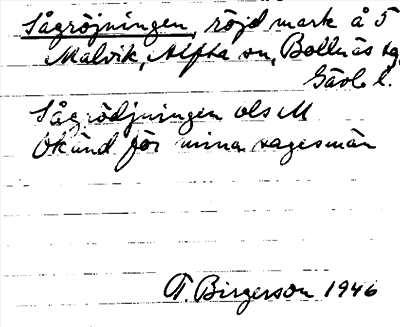 Sågröjningen, röjd mark å 5
Malvik, Alfta sn, Bollnäs sg,
Gävleb. l.
Sågrödjningen ols M
Okänd för mina sagesmän
T. Birgerson 1946